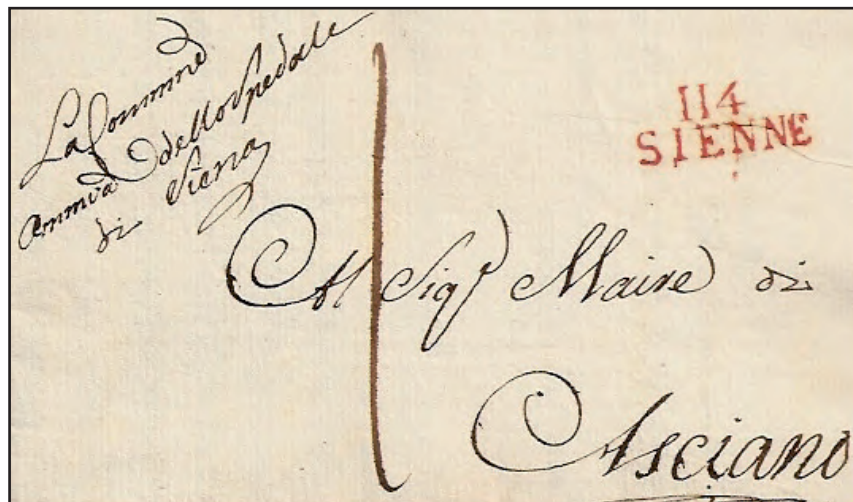 La Comm.ne
Amm.va dello Spedale
di Siena
114
SIENNE
Al Sig.r Maire di
Asciano